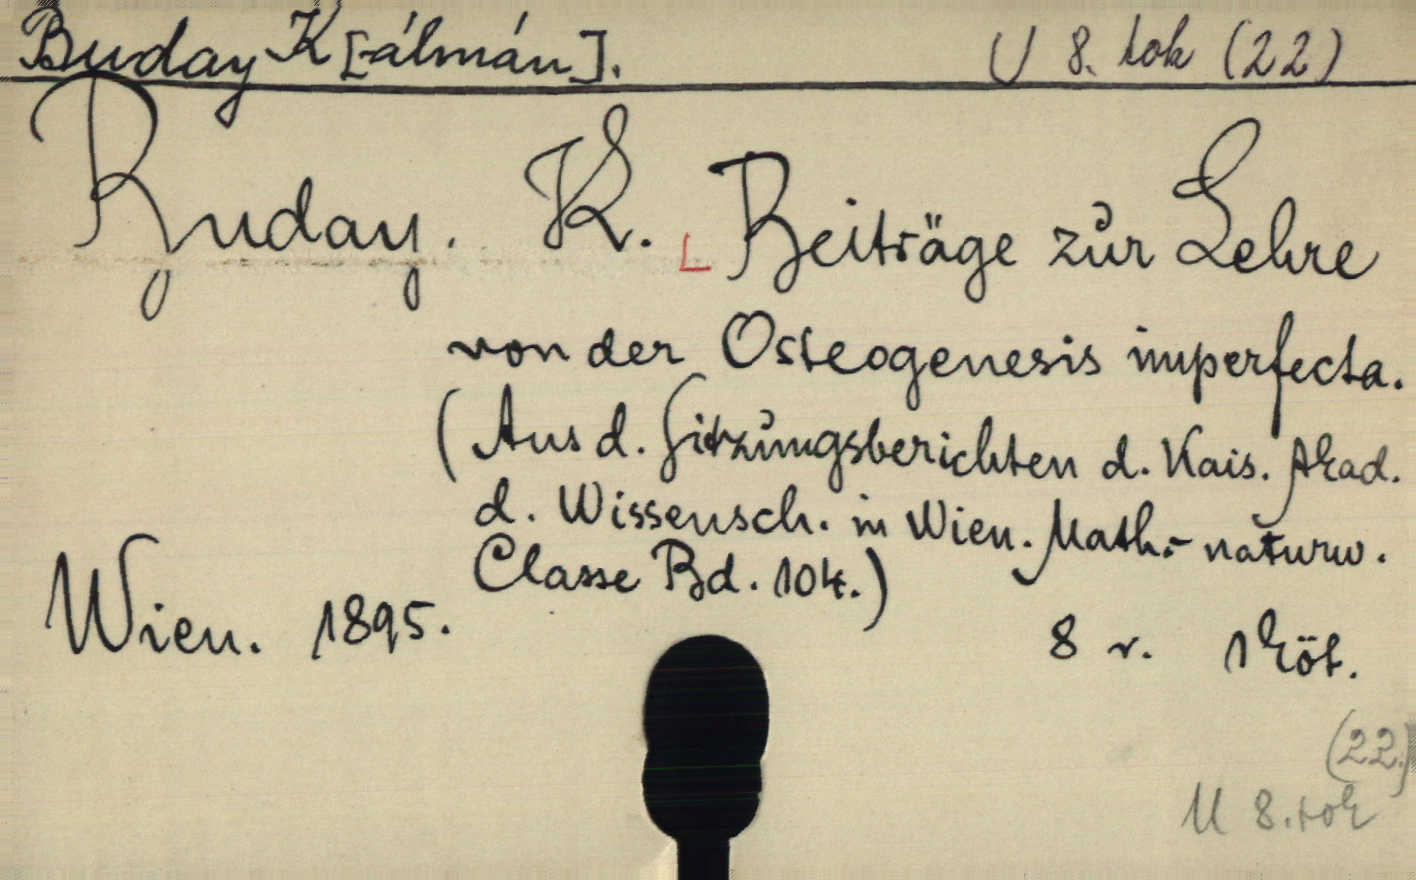 Buday K[-álmán]. U 8. tok (22)
Buday. K. Beiträge zur Lehre
von der Osteogenesis imperfecta.
(Aus d. Sitzungsberichten d. Kais. Akad.
d. Wissensch. in Wien. Math.- naturw.
Classe Bd. 104.)
Wien. 1895. 8 r. 1 köt.
(22.)
U 8. tok